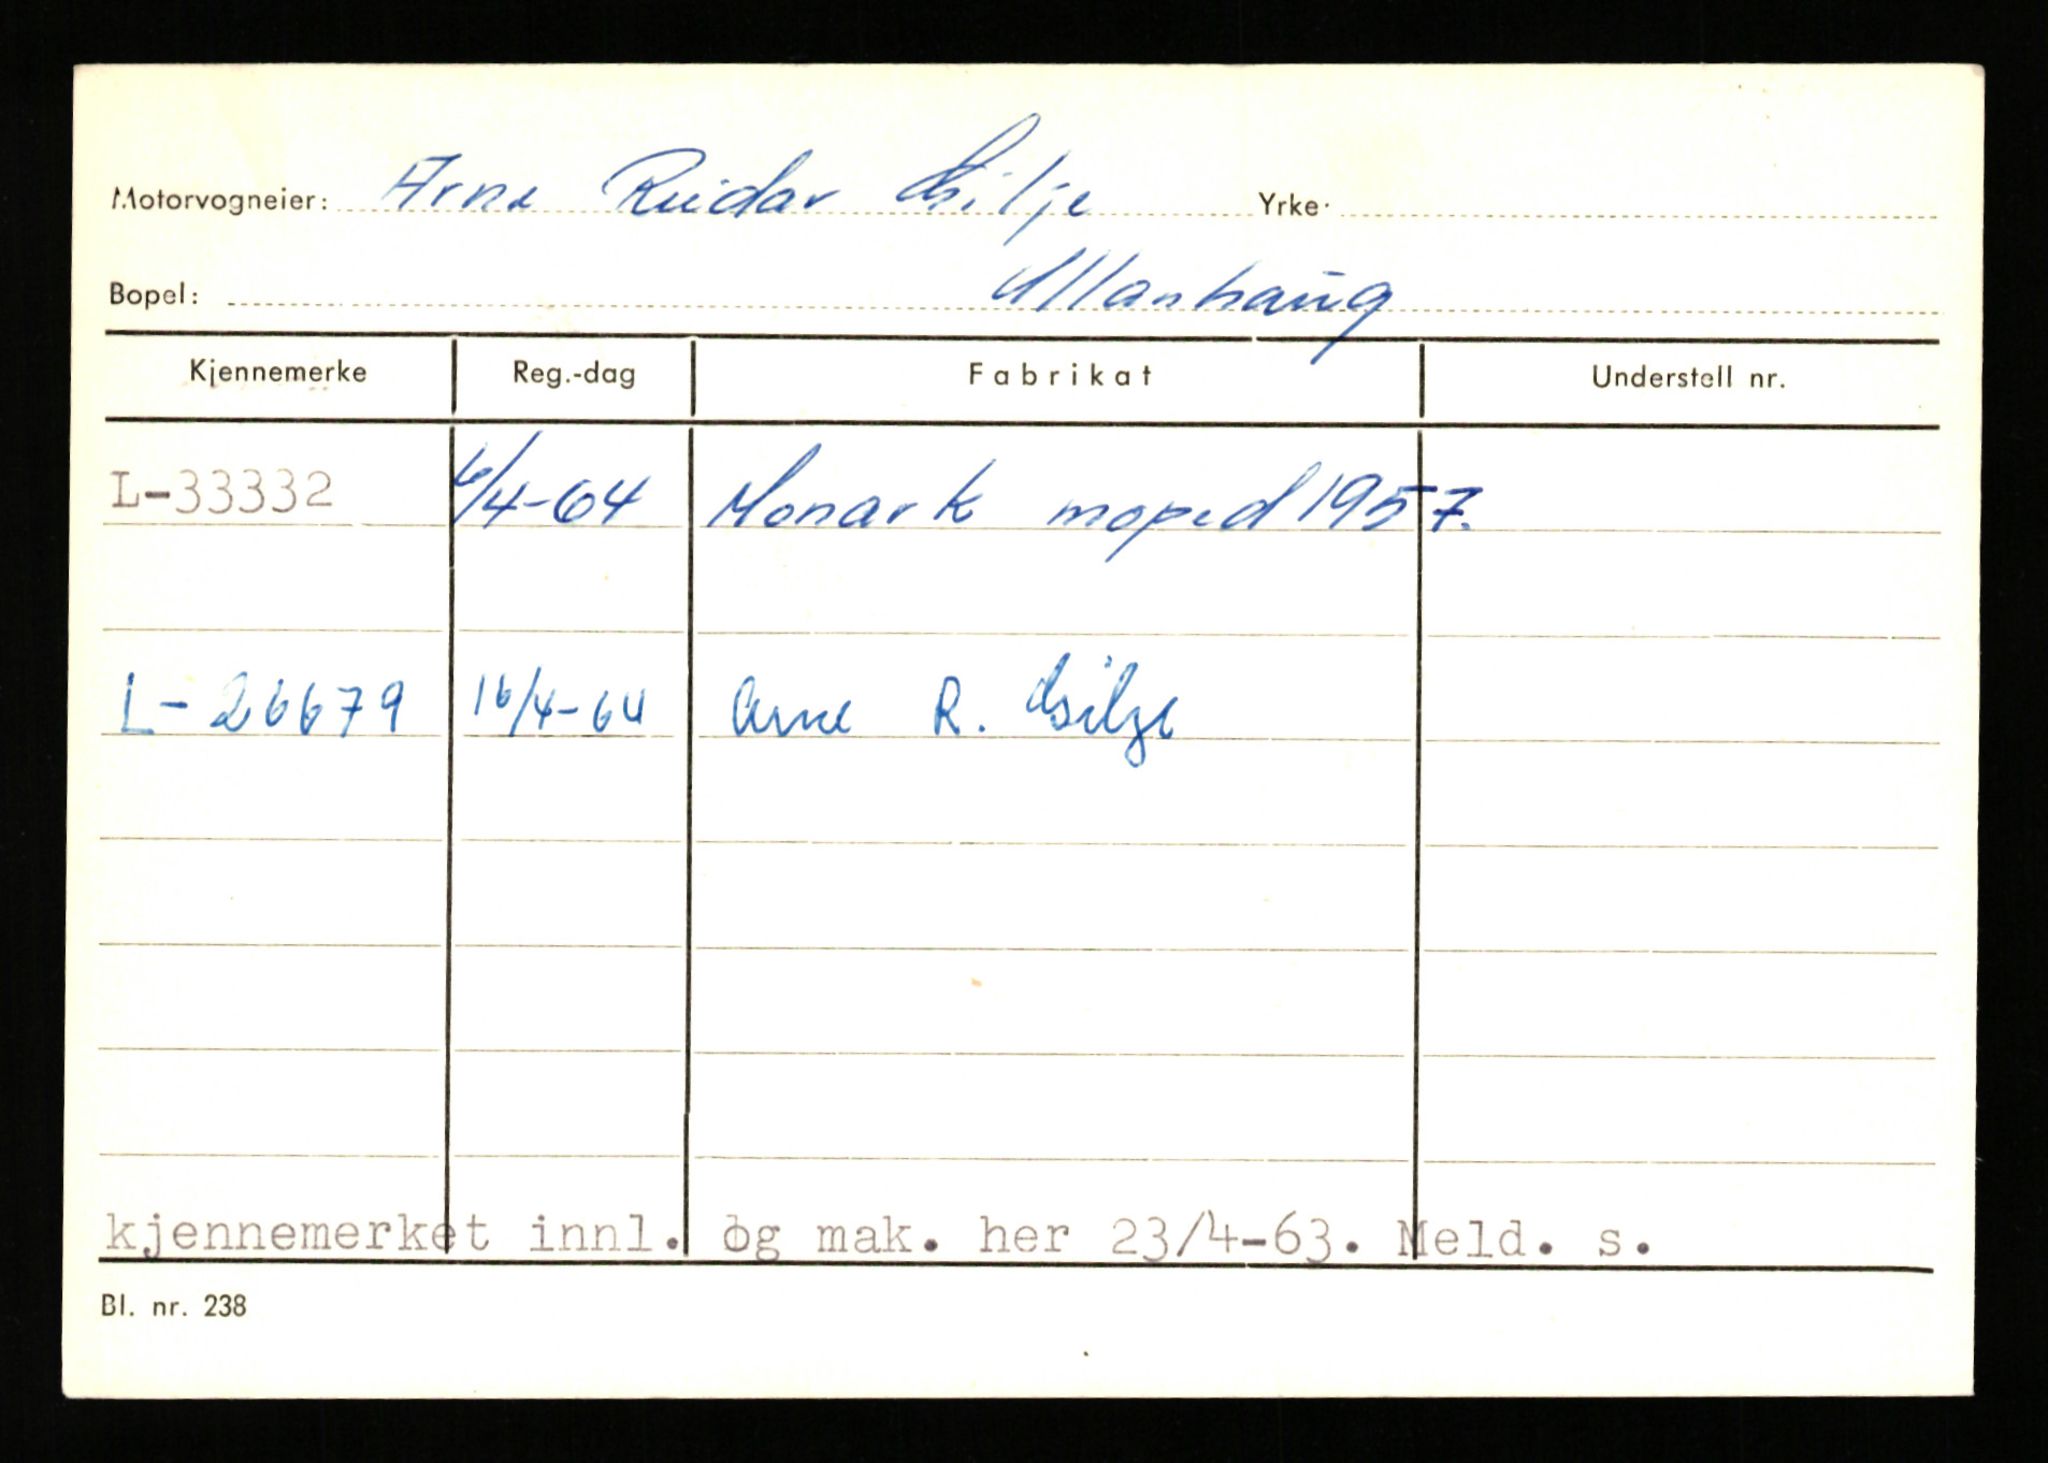 Motorvogneier: Arne Reidar Gilje Yrke:
Bopel: Ullanhaug
Kjennemerke Reg.-dag Fabrikat Understell nr.
L-33332 6/4-64 Monark moped 1957.
L-26679 16/4-64 Arne R. Gilje
kjennemerket innl. og mak. her 23/4-63. Meld. s.
Bl. nr. 238